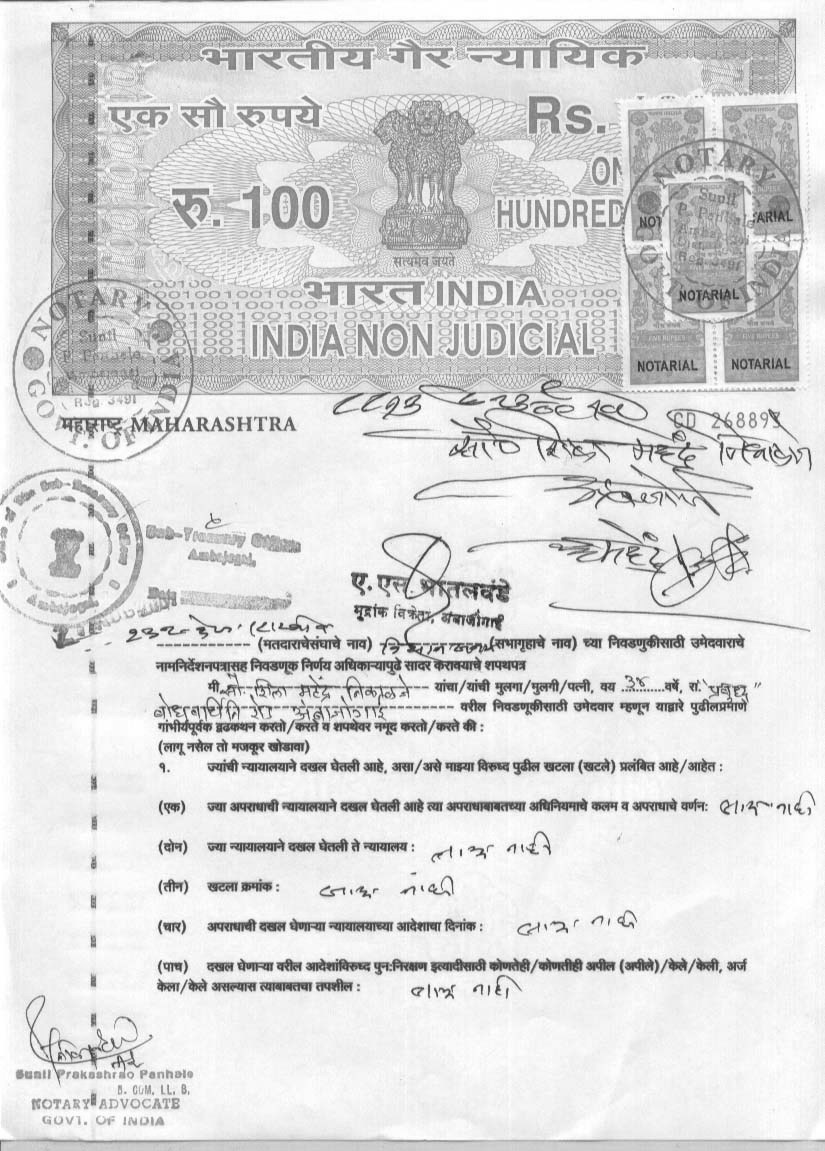 भारतीय गैर न्यायिक
एक सौ रुपये
Rs.
रु. 100
HUNDRED
सत्यमेव जयते
भारत INDIA
INDIA NON JUDICIAL
NOTARIAL
NOTARIAL NOTARIAL
NOTARY
GOVT. OF INDIA
Reg. 3491
NOTARY
GOVT. OF INDIA
Sunil
Reg. 3491
महाराष्ट्र MAHARASHTRA
CD 268893
सौ. शिला महेंद्र निकाळजे
Sub-Treasury Officer
Ambajogai.
मुद्रांक विक्रेता, अंबाजोगाई
(मतदाराचेसंघाचे नाव) विधानसभा (सभागृहाचे नाव) च्या निवडणुकीसाठी उमेदवाराचे
नामनिर्देशनपत्रासह निवडणूक निर्णय अधिकाऱ्यापुढे सादर करावयाचे शपथपत्र
मी सौ. शिला महेंद्र निकाळजे यांचा/यांची मुलगा/मुलगी/पत्नी, वय ३४ वर्षे, रा. "प्रबुध्द"
अंबाजोगाई वरील निवडणूकीसाठी उमेदवार म्हणून याद्वारे पुढीलप्रमाणे
गांभीर्यपूर्वक द्रढकथन करतो/करते व शपथेवर नमूद करतो/करते की :
(लागू नसेल तो मजकूर खोडावा)
१. ज्यांची न्यायालयाने दखल घेतली आहे, असा/असे माझ्या विरुध्द पुढील खटला (खटले) प्रलंबित आहे/आहेत :
(एक) ज्या अपराधाची न्यायालयाने दखल घेतली आहे त्या अपराधाबाबतच्या अधिनियमाचे कलम व अपराधाचे वर्णन: लागू नाही
(दोन) ज्या न्यायालयाने दखल घेतली ते न्यायालय : लागू नाही
(तीन) खटला क्रमांक : लागू नाही
(चार) अपराधाची दखल घेणाऱ्या न्यायालयाच्या आदेशाचा दिनांक : लागू नाही
(पाच) दखल घेणाऱ्या वरील आदेशांविरुध्द पुन:निरक्षण इत्यादीसाठी कोणतेही/कोणतीही अपील (अपीले)/केले/केली, अर्ज
केला/केले असल्यास त्याबाबतचा तपशील : लागू नाही
Sunil Prakashrao Panhale
B. COM. LL. B.
NOTARY ADVOCATE
GOVT. OF INDIA